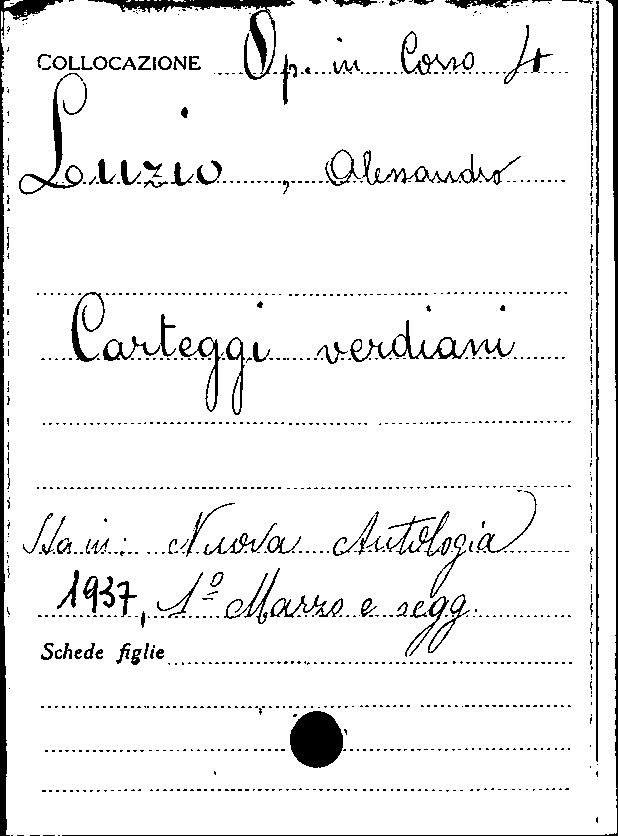 COLLOCAZIONE Op. in Corso 4
Luzio, Alessandro
Carteggi verdiani
Sta in: Nuova Antologia
1937, 1º Marzo e segg.
Schede figlie